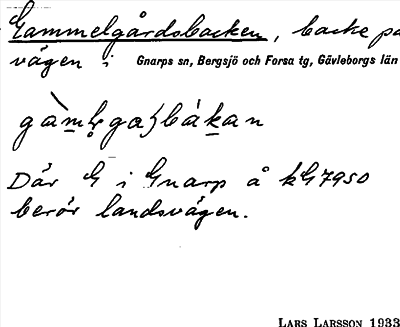 Gammelgårdsbacken, backe på
vägen i Gnarps sn, Bergsjö och Forsa tg, Gävleborgs län
Där G i Gnarp å kG 7950
berör landsvägen.
LARS LARSSON 1933